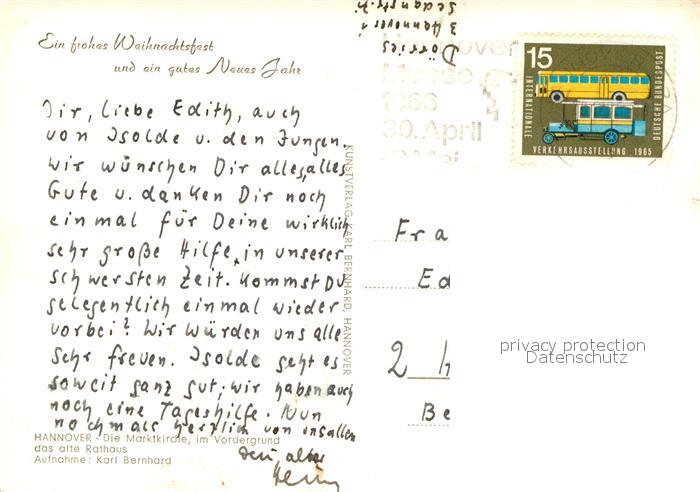 Ein frohes Weihnachtsfest
und ein gutes Neues Jahr
Dir, liebe Edith, auch
von Isolde u. den Jungen,
wir wünschen Dir alles, alles
Gute u. danken Dir noch
einmal für Deine wirklich
sehr große Hilfe in unserer
schwersten Zeit. Kommst Du
gelegentlich einmal wieder
vorbei? Wir würden uns alle
sehr freuen. Isolde geht es
soweit ganz gut, wir haben auch
noch eine Tageshilfe. Nun
nochmals herzlich von uns allen
Dein alter
HANNOVER - Die Marktkirche, im Vordergrund
das alte Rathaus
Aufnahme: Karl Bernhard
KUNSTVERLAG KARL BERNHARD, HANNOVER
Dörries
3 Hannover
Sedanstr.
Hannover
Messe
1966
30. April
15
INTERNATIONALE
VERKEHRSAUSSTELLUNG 1965
DEUTSCHE BUNDESPOST
Fra
Ed
2 H
Be
privacy protection
Datenschutz